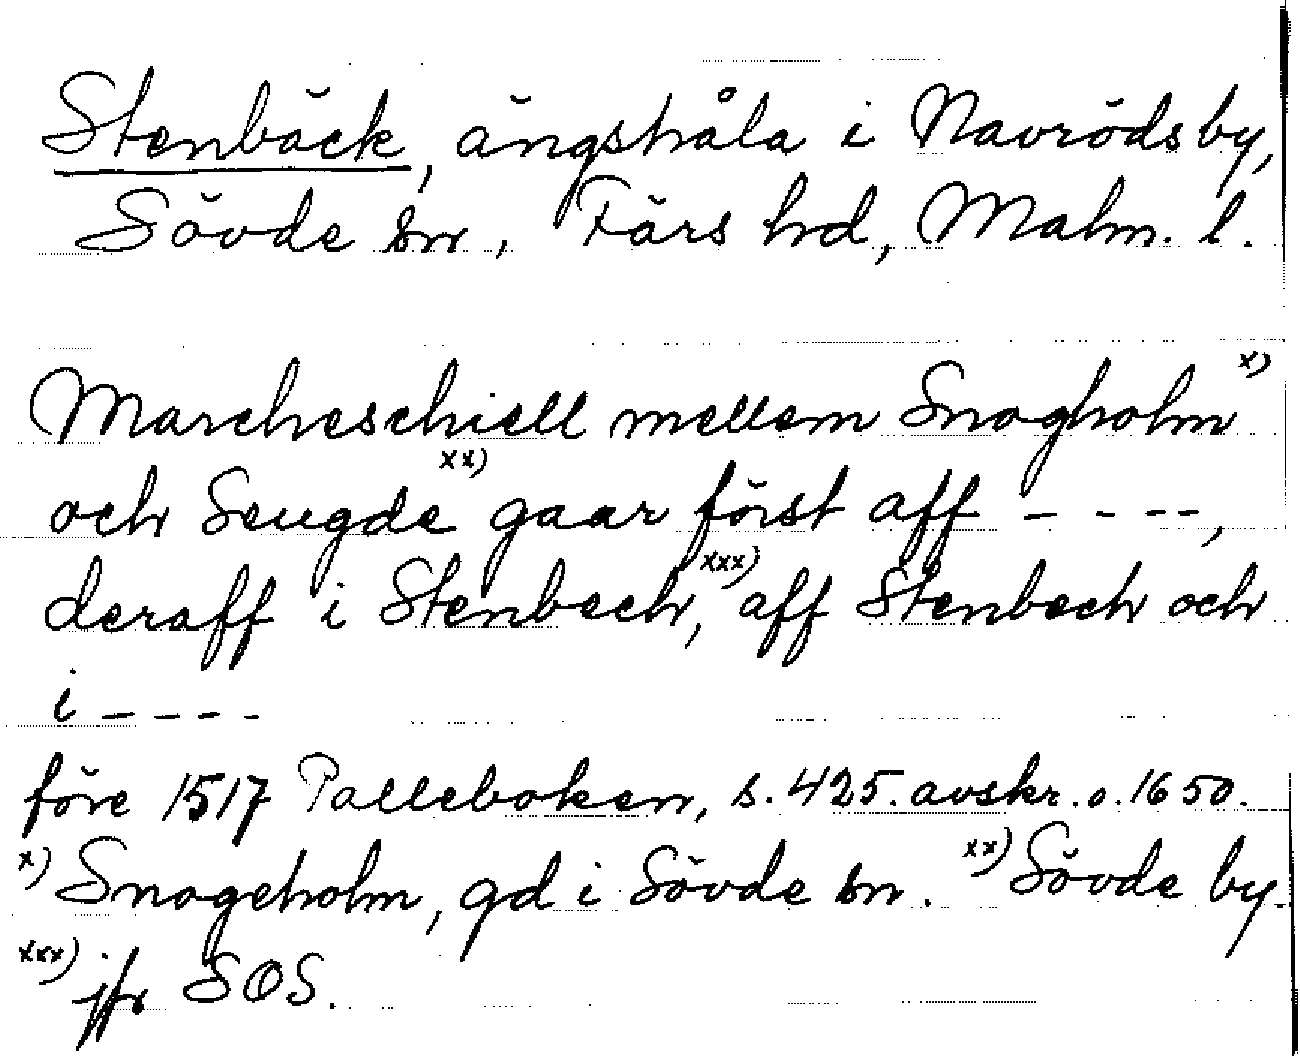 Stenbäck, ängshåla i Navröds by,
Sövde sn, Färs hd, Malm. l.
Marcheschiell mellem Snogholm x)
och Seugde xx) gaar först aff - - - -,
deraff i Stenbech, xxx) aff Stenbech och
i - - - -
före 1517 Palleboken, s. 425. avskr. o. 1650.
x) Snogeholm, gd i Sövde sn. xx) Sövde by.
xxx) jfr SOS.